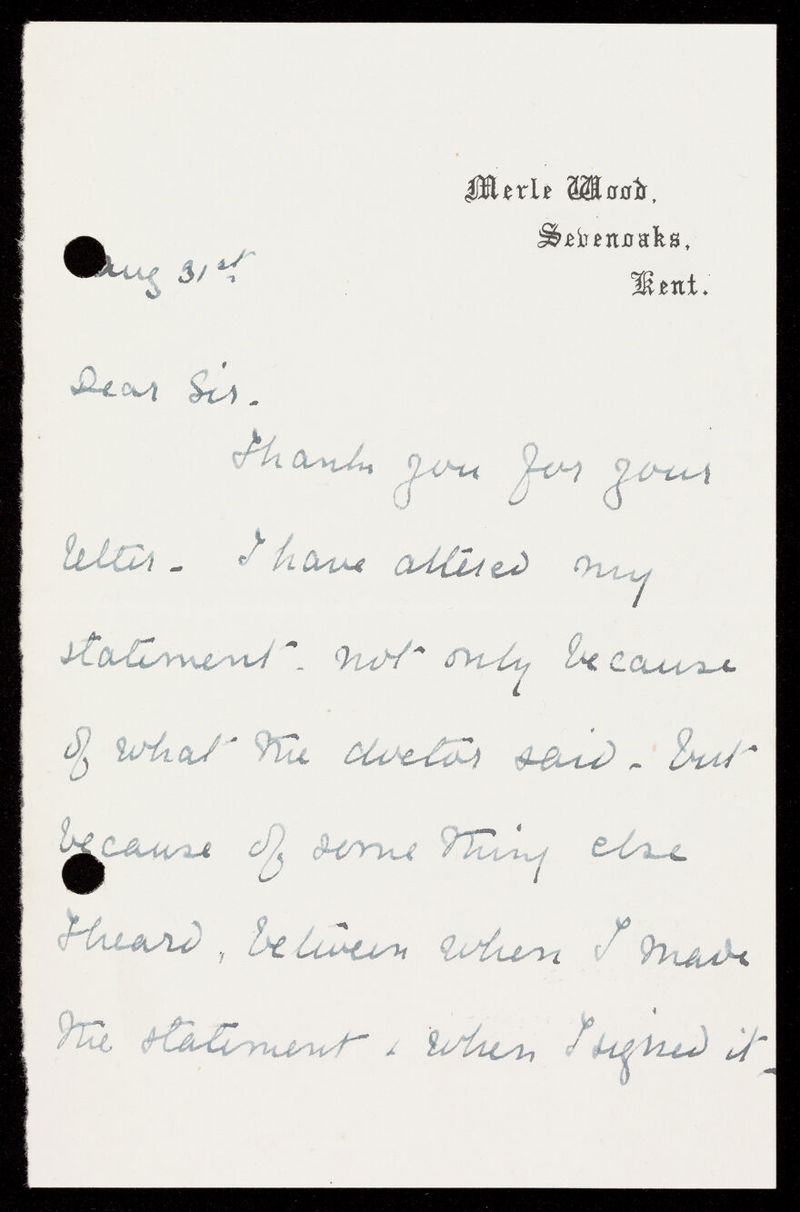 Merle Wood,
Sevenoaks,
Kent.
Aug 31st
Dear Sir.
Thank you for your
letter - I have altered my
statement - not only because
of what the doctor said - but
because of some thing else
I heard, between when I made
the statement & when I signed it -